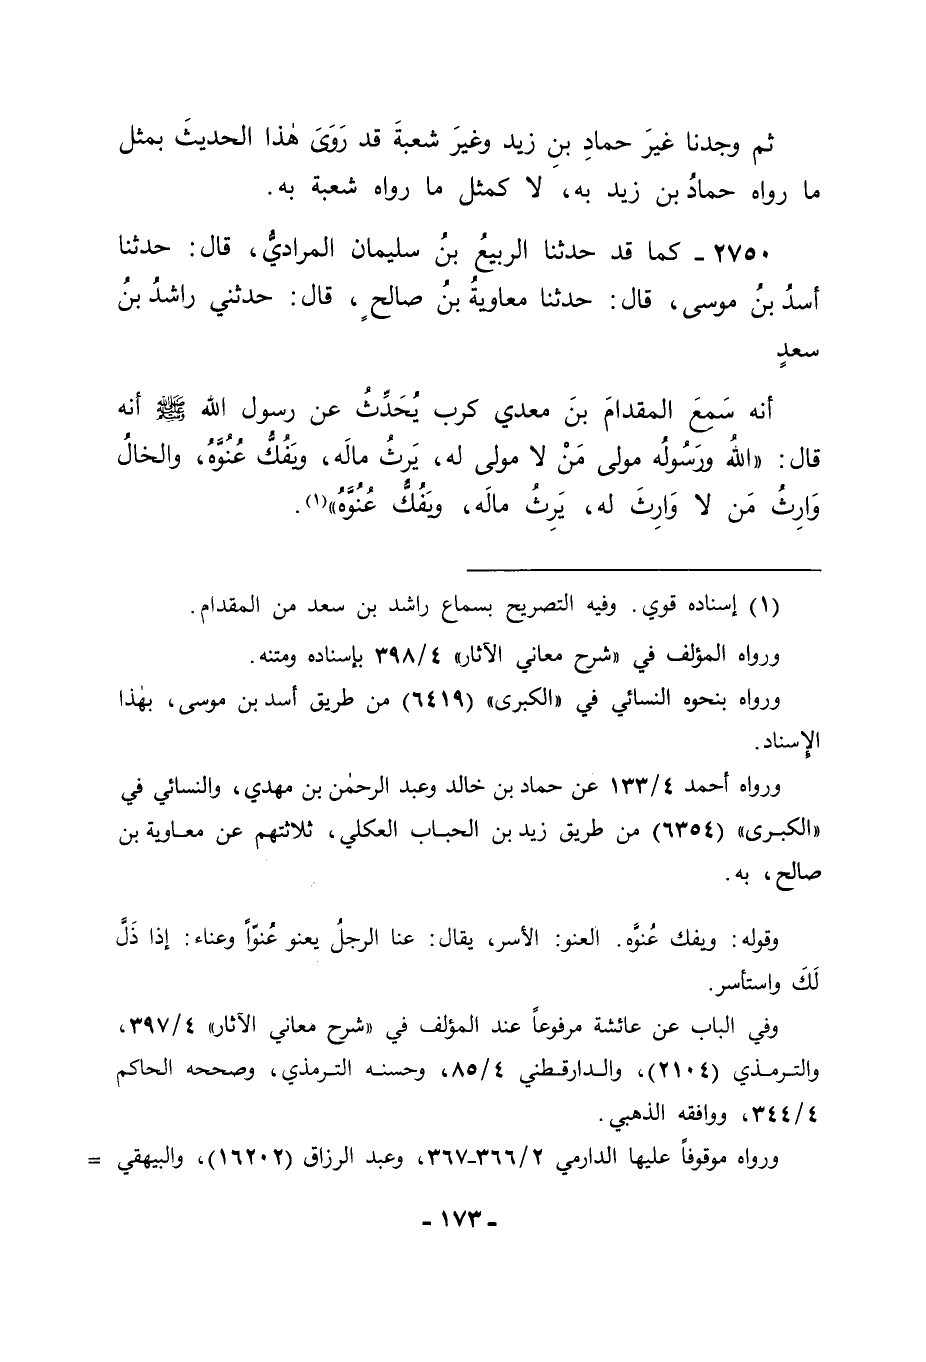 ثم وجدنا غيرَ حمادِ بنِ زيد وغيرَ شعبةَ قد رَوَىَ هٰذا الحديثَ بمثل
ما رواه حمادُ بن زيد به، لا كمثل ما رواه شعبة به.
٢٧٥٠ ـ كما قد حدثنا الربيعُ بنُ سليمان المراديُّ، قال: حدثنا
أسدُ بنُ موسى، قال: حدثنا معاويةُ بنُ صالحٍ، قال: حدثني راشدُ بنُ
سعدٍ
أنه سَمِعَ المقدامَ بنَ معدي كرب يُحَدِّثُ عن رسول الله ﷺ أنه
قال: «اللهُ ورَسُولُه مولى مَنْ لا مولى له، يَرِثُ مالَه، ويَفُكُّ عُنُوَّهُ، والخالُ
وَارِثُ مَن لا وَارِثَ له، يَرِثُ مالَه، ويَفُكُّ عُنُوَّهُ»(١).
(١) إسناده قوي. وفيه التصريح بسماع راشد بن سعد من المقدام.
ورواه المؤلف في «شرح معاني الآثار» ٣٩٨/٤ بإسناده ومتنه.
ورواه بنحوه النسائي في «الكبرى» (٦٤١٩) من طريق أسد بن موسى، بهٰذا
الإِسناد.
ورواه أحمد ١٣٣/٤ عن حماد بن خالد وعبد الرحمٰن بن مهدي، والنسائي في
«الكبرى» (٦٣٥٤) من طريق زيد بن الحباب العكلي، ثلاثتهم عن معاوية بن
صالح، به.
وقوله: ويفك عُنوَّه. العنو: الأسر، يقال: عنا الرجلُ يعنو عُنوّاً وعناء: إذا ذَلَّ
لَكَ واستأسر.
وفي الباب عن عائشة مرفوعاً عند المؤلف في «شرح معاني الآثار» ٣٩٧/٤،
والترمذي (٢١٠٤)، والدارقطني ٨٥/٤، وحسنه الترمذي، وصححه الحاكم
٣٤٤/٤، ووافقه الذهبي.
ورواه موقوفاً عليها الدارمي ٣٦٦/٢-٣٦٧، وعبد الرزاق (١٦٢٠٢)، والبيهقي =
ـ ١٧٣ ـ